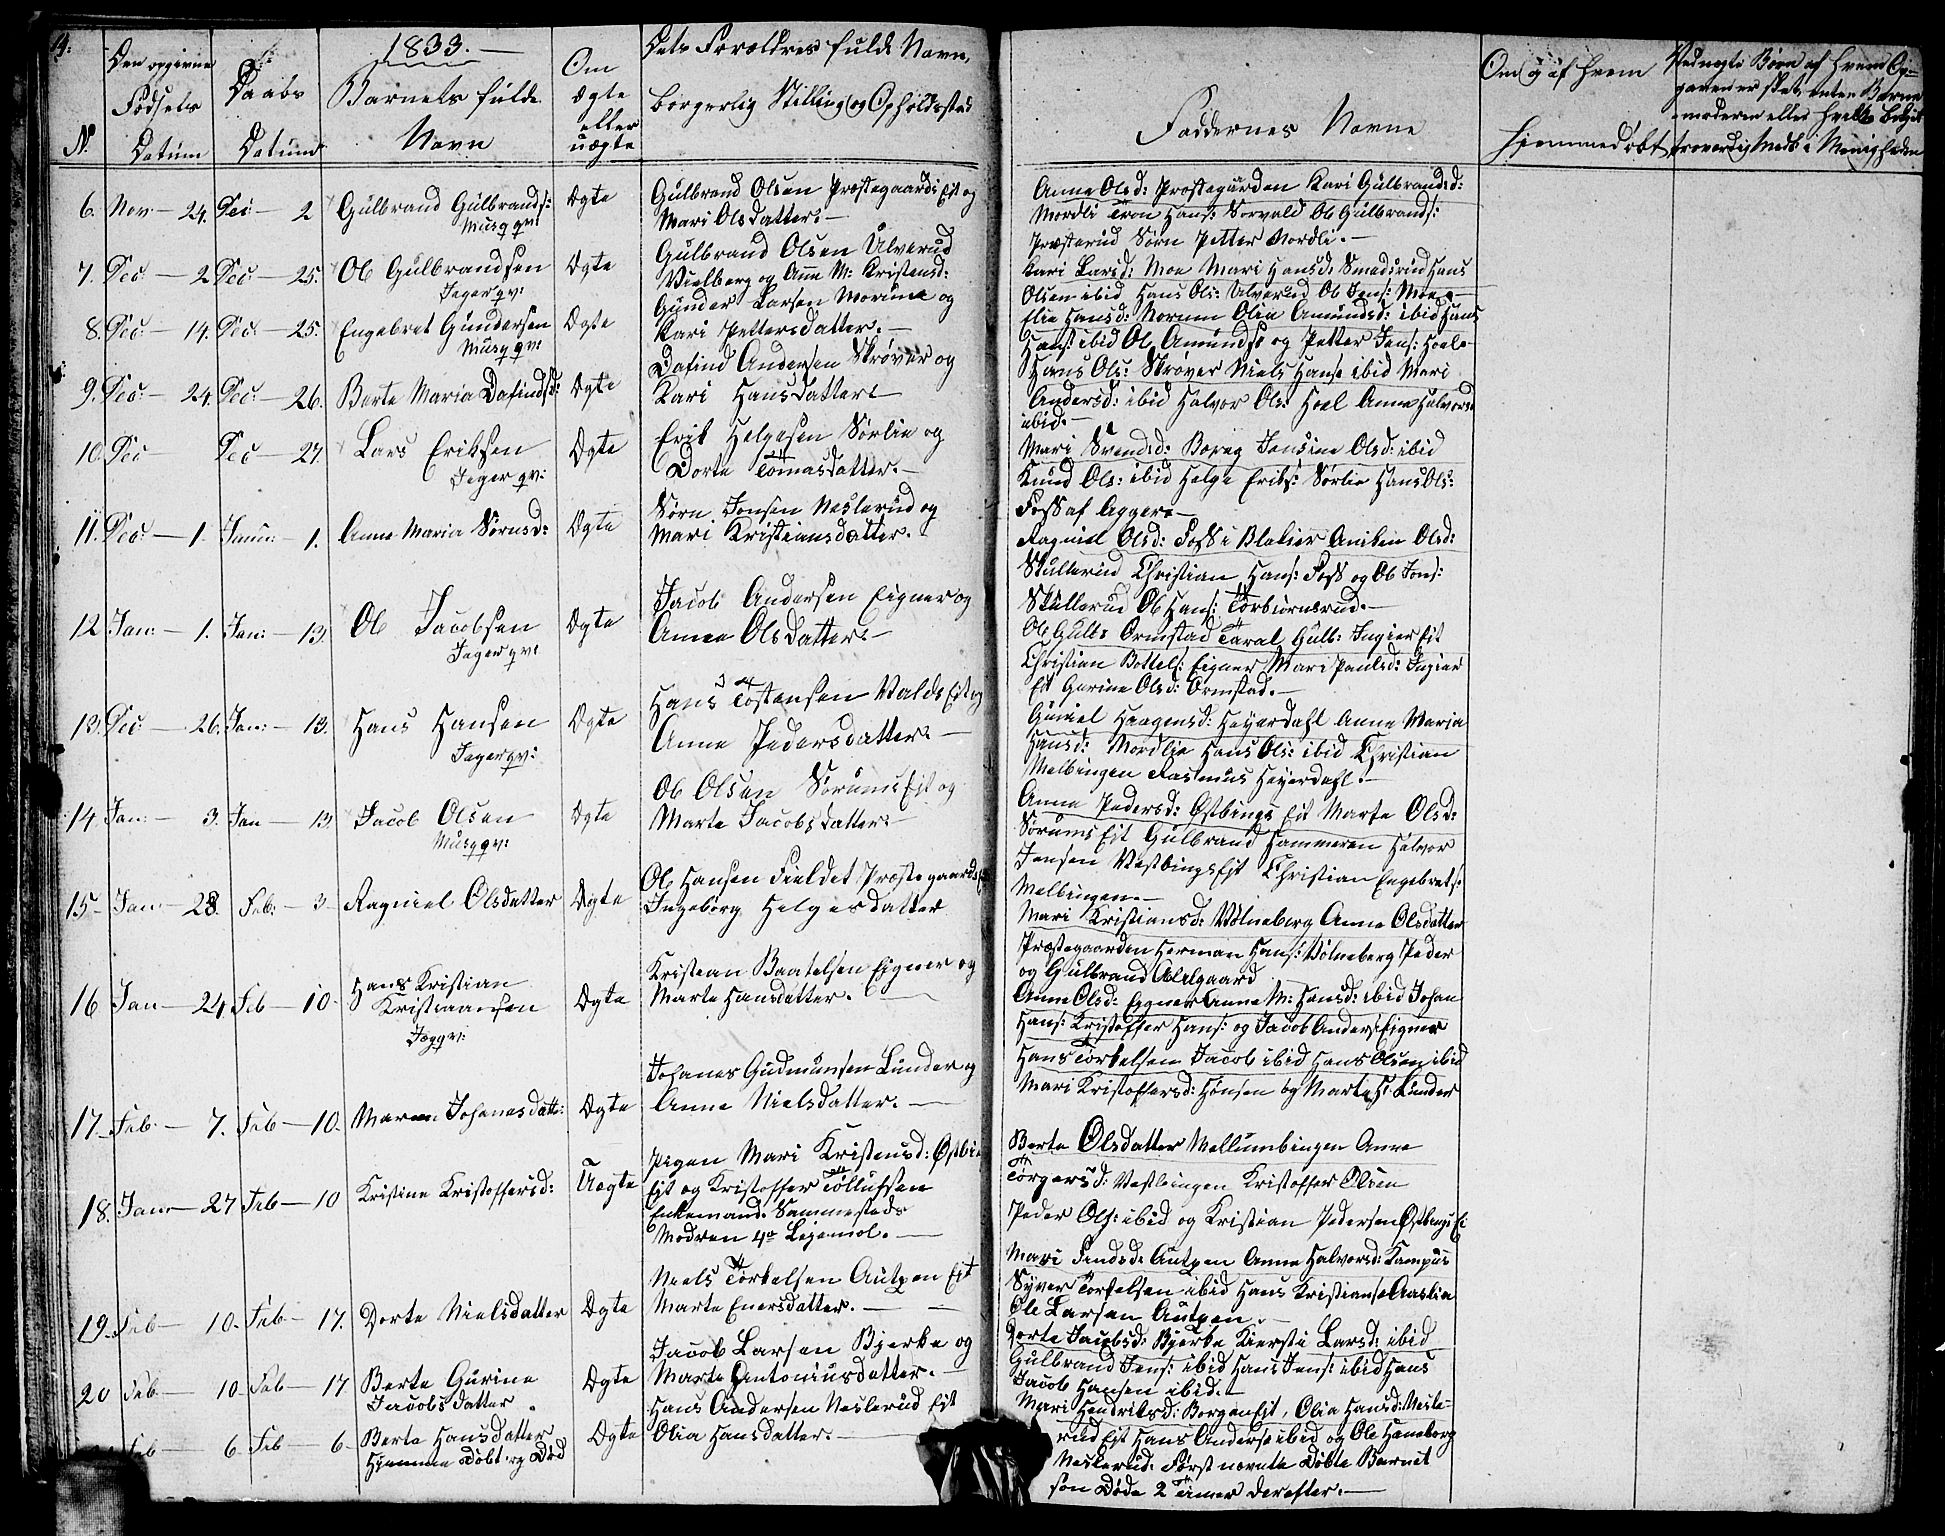 1833.
N.
Den opgivne Fødsels Datum
Daabs Datum
Barnets fulde Navn
Om ægte eller uægte
Dets Forældres fulde Navn, borgerlig Stilling og Opholdsstad
Faddernes Navne
Om og af hvem hjemmedøbt
6. Nov — 24. Dec — 2 Gulbrand Gulbrands: Ægte
Gulbrand Olsen Præstegaards Ejt og
Mari Olsdatter.
Anne Olsd: Præstegaarden Kari Gulbrandsd:
Nordli Tron Hans: Sorvald Ole Gulbrands:
Præsterud Sørn Petter Nordli.
7. Dec — 2 Dec — 25. Ole Gulbrandsen Jeger qv: Ægte
Gulbrand Olsen Ulverud
Vielberg og Ane M: Kristensd:
Kari Larsd: Moe Mari Hansd: Smedsrud Hans
Olsen ibid Hans Ols: Ulverud Ole Jens: Moe
8. Dec — 14. Dec — 25. Engebret Gundersen Ægte
Gunder Larsen Morune og
Kari Pettersdatter.
Elie Hansd: Norum Olia Amundsd: ibid Hans
Hans: ibid Ole Amunds: og Petter Jens: Hoele
9. Dec — 24. Dec — 26. Berte Maria Dafindsd: Ægte
Dafind Andersen Skrøver og
Kari Hansdatter
Hans Ols: Skrøver Niels Hanse ibid Mari
Andersd: ibid Halvor Ols: Hoel Anne Halvorsd
ibid.
10. Dec Dec — 27. Lars Eriksen Jeger qv: Ægte
Erik Helgesen Sørlie og
Dorte Tomasdatter.
Mari Svendsd: Borag Jensine Olsd: ibid
Knud Ols: ibid Helge Eriks: Sørlie Hans Ols:
Foss af Agger
11. Dec — 1. Janu: — 1. Anne Maria Sørnsd: Ægte
Sørn Jonsen Neslerud og
Mari Kristiansdatter.
Ragniel Olsd: Foss i Blakier Aniken Olsd:
Skullerud Christian Hans: Foss og Ole Jons:
Skullerud Ole Hans: Torbiørnsrud.
12 Jan: — 1. Jan: — 13. Ole Jacobsen Jeger qv: Ægte
Jacob Andersen Eigner og
Anne Olsdatter.
Ole Gulbs Ormstad Taral Gulb: Ingier Ejt
Christian Bottels: Eigner Mari Paulsd: Ingier
Ejt Gurine Olsd: Ormstad.
13. Dec — 26. Jan: — 13. Hans Hansen Jeger qv: Ægte
Hans Tostensen Valds Ejt og
Anne Pedersdatter.
Guniel Haagensd: Heyerdahl Anne Maria
Hansd: Nordlie Hans Ols: ibid Christian
Melbingen Rasmus Heyerdahl.
14 Jan: — 3. Jan — 13. Jacob Olsen Ægte
Ole Olsen Sørums Ejt og
Marte Jacobsdatter.
Anne Pedersd: Østbings Ejt Marte Olsd:
Sørums Ejt Gulbrand Hammeren Halvor
Jensen Vestbings Ejt Christian Engebrets:
Melbingen.
15 Jan: — 28. Feb: — 3 Ragniel Olsdatter Ægte
Ole Hansen Fieldet Præstegaards
Ingeborg Helgesdatter
Mari Kristiansd: Vølneberg Anne Olsdatter
Præstegaarden Herman Hans: Vølneberg Peder
og Gulbrand Ablegaard
16 Jan — 24 Feb — 10 Hans Kristian Kristiaansen Ægte
Kristian Baatelsen Eigner og
Marte Hansdatter.
Anne Olsd: Eigner Anne M: Hansd: ibid Johan
Hans: Kristoffer Hans: og Jacob Anders: Eigner
17. Feb. — 7. Feb — 10. Maren Johanesdatte: Ægte
Johanes Gudmunsen Lunder og
Anne Nielsdatter.
Hans Torkelsen Jacob ibid Hans Olsen ibid
Mari Kristoffersd: Hønsen og Marte H: Lunder
18. Jan — 27 Feb — 10 Kristine Kristoffersd: Uægte
Pigen Mari Kristensd: Østbi
Ejt og Kristoffer Tollufsen
Enkemand. Sammesteds
Modren 4de Lejemol.
Berte Olsdatter Mellumbingen Anne
Torgersd: Vestbingen Kristoffer Olsen
Peder Ols: ibid og Kristian Pedersen Østbings Ej
19. Feb — 10. Feb — 17. Dorte Nielsdatter Ægte
Niels Torkelsen Autgen Ejt
Marte Enersdatter.
Mari Findsd: Autgen Anne Halvorsd: Kampus
Syver Torkelsen ibid Hans Kristianse Aaslia
Ole Larsen Autgen.
20 Feb — 10 Feb — 17 Berte Gurine Jacobsdatter Ægte
Jacob Larsen Bjerke og
Marte Antoniusdatter.
Dorte Jacobsd: Bjerke Kiersti Larsd: ibid
Gulbrand Jens: ibid Hans Jens: ibid Hans
Jacob Hansen ibid.
Feb — 6 Feb — 6 Berte Hansdatter Hjemme Døbt og Død Ægte
Hans Andersen Neslerud Ejt
Olia Hansdatter.
Mari Hendriksd: Borgen Ejt, Olia Hansd: Nesle-
rud Ejt Hans Anderse ibid og Ole Haneborg
Neslerud. Først nævnte Døbte Barnet
son Døde 2 Timer derefter.